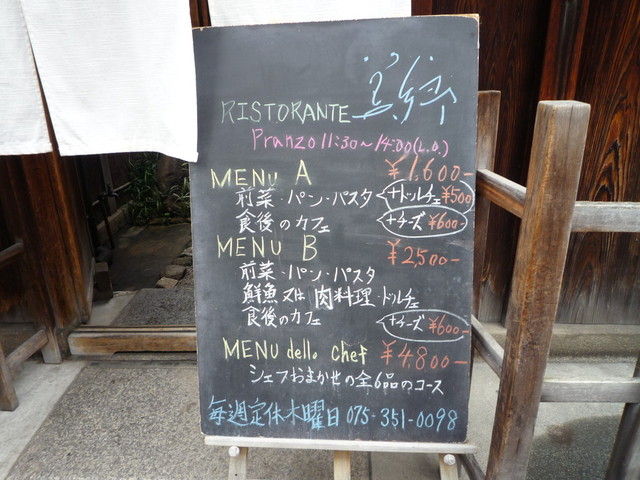 RISTORANTE
Pranzo 11:30~14:00(L.O.)
MENU A ¥1,600-
前菜・パン・パスタ +ドルチェ ¥500
食後のカフェ +チーズ ¥600-
MENU B ¥2,500-
前菜・パン・パスタ
鮮魚又は肉料理・ドルチェ
食後のカフェ +チーズ ¥600-
MENU dello chef ¥4,800-
シェフおまかせの全6品のコース
毎週定休木曜日 075-351-0098